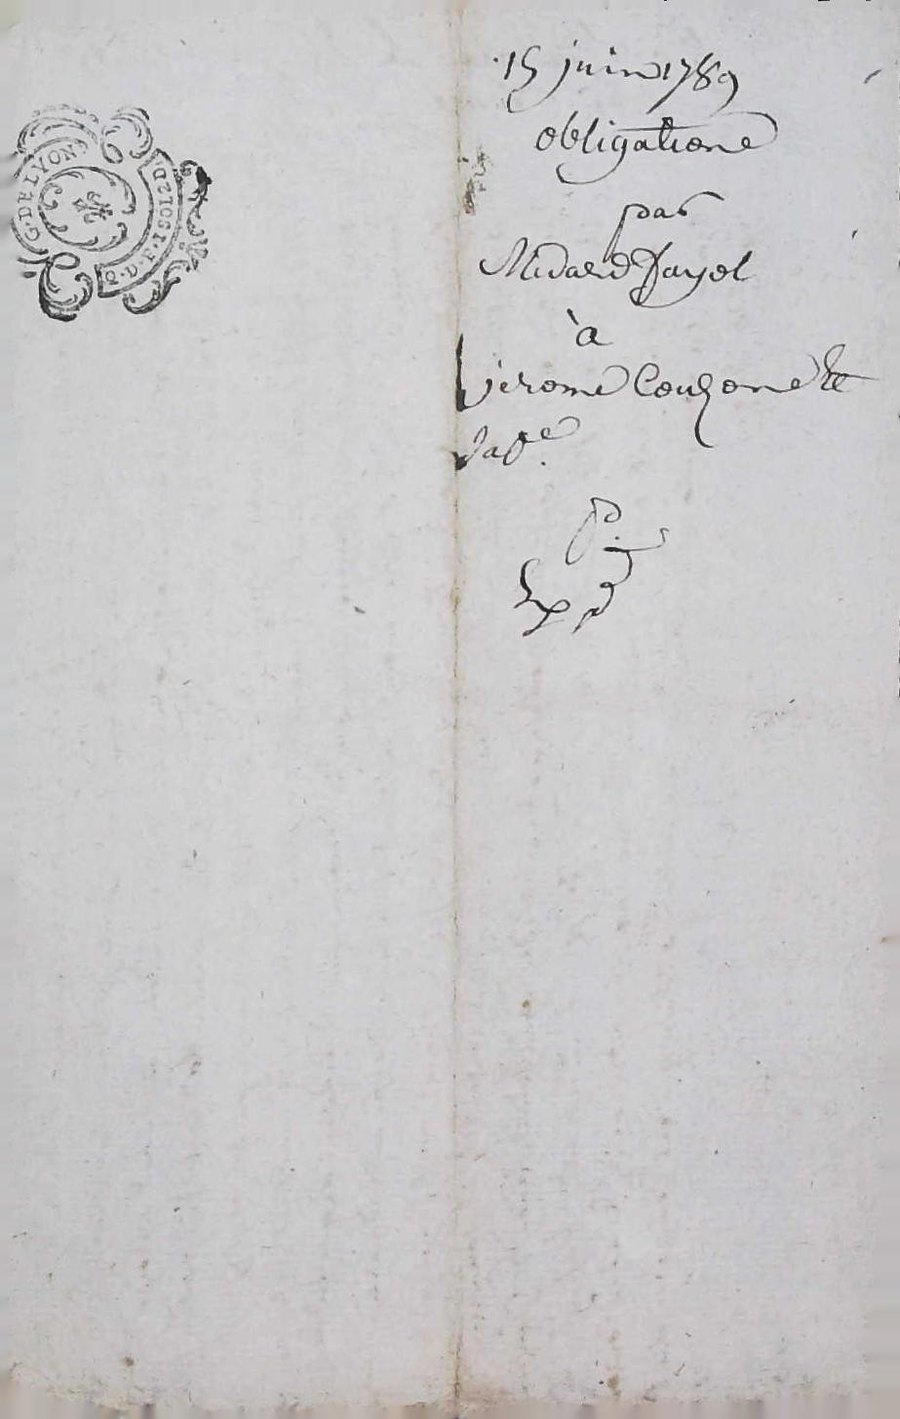 G. DE LYON
15 juin 1789
obligation
par
Medard Fayol
à
jerome Couzon et
sa fe.